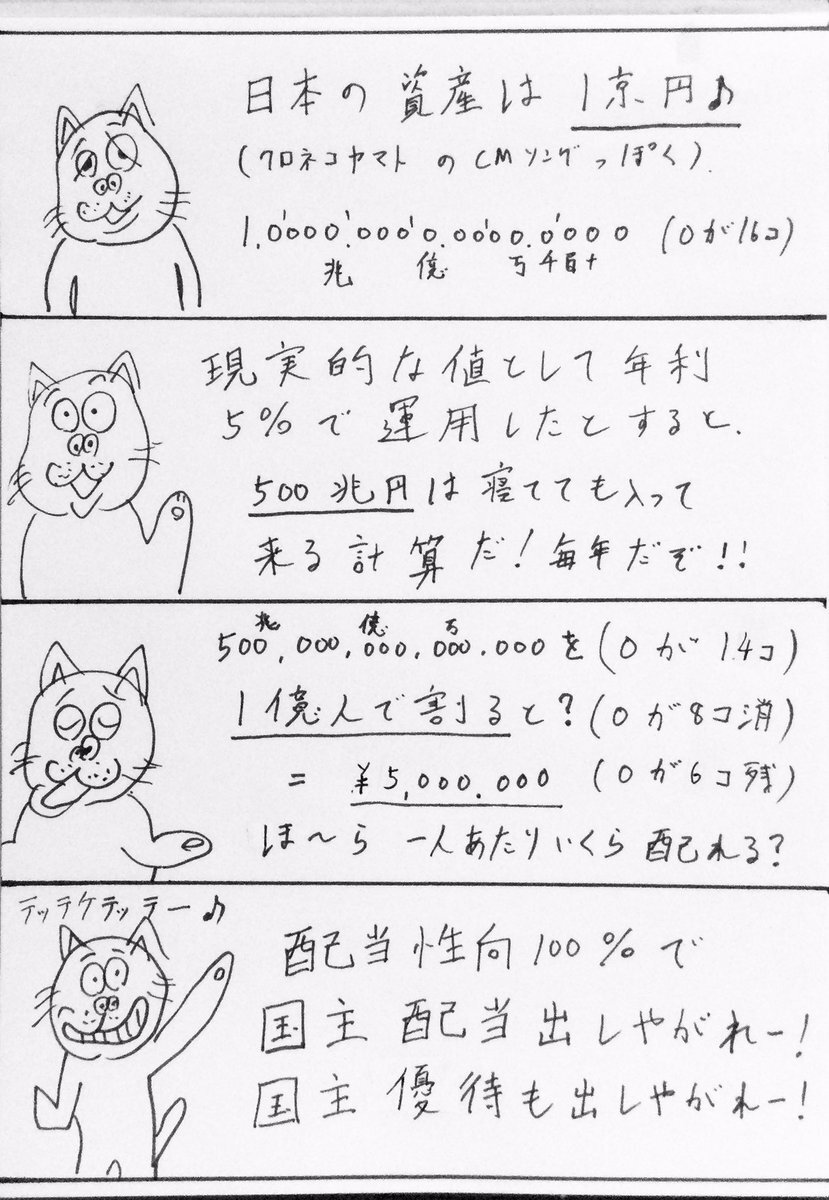 日本の資産は1京円♪
(クロネコヤマトのCMソングっぽく).
1.0000.0000.0000.0000 (0が16コ)
兆 億 万千百十
現実的な値として年利
5%で運用したとすると.
500兆円は寝てても入って
来る計算だ!毎年だぞ!!
兆 億 万
500,000,000,000.000を(0が14コ)
1億人で割ると?(0が8コ消)
= ¥5,000.000 (0が6コ残)
ほ〜ら 一人あたりいくら配れる?
テッテケテッテー♪
配当性向100%で
国主配当出しやがれー!
国主優待も出しやがれー!